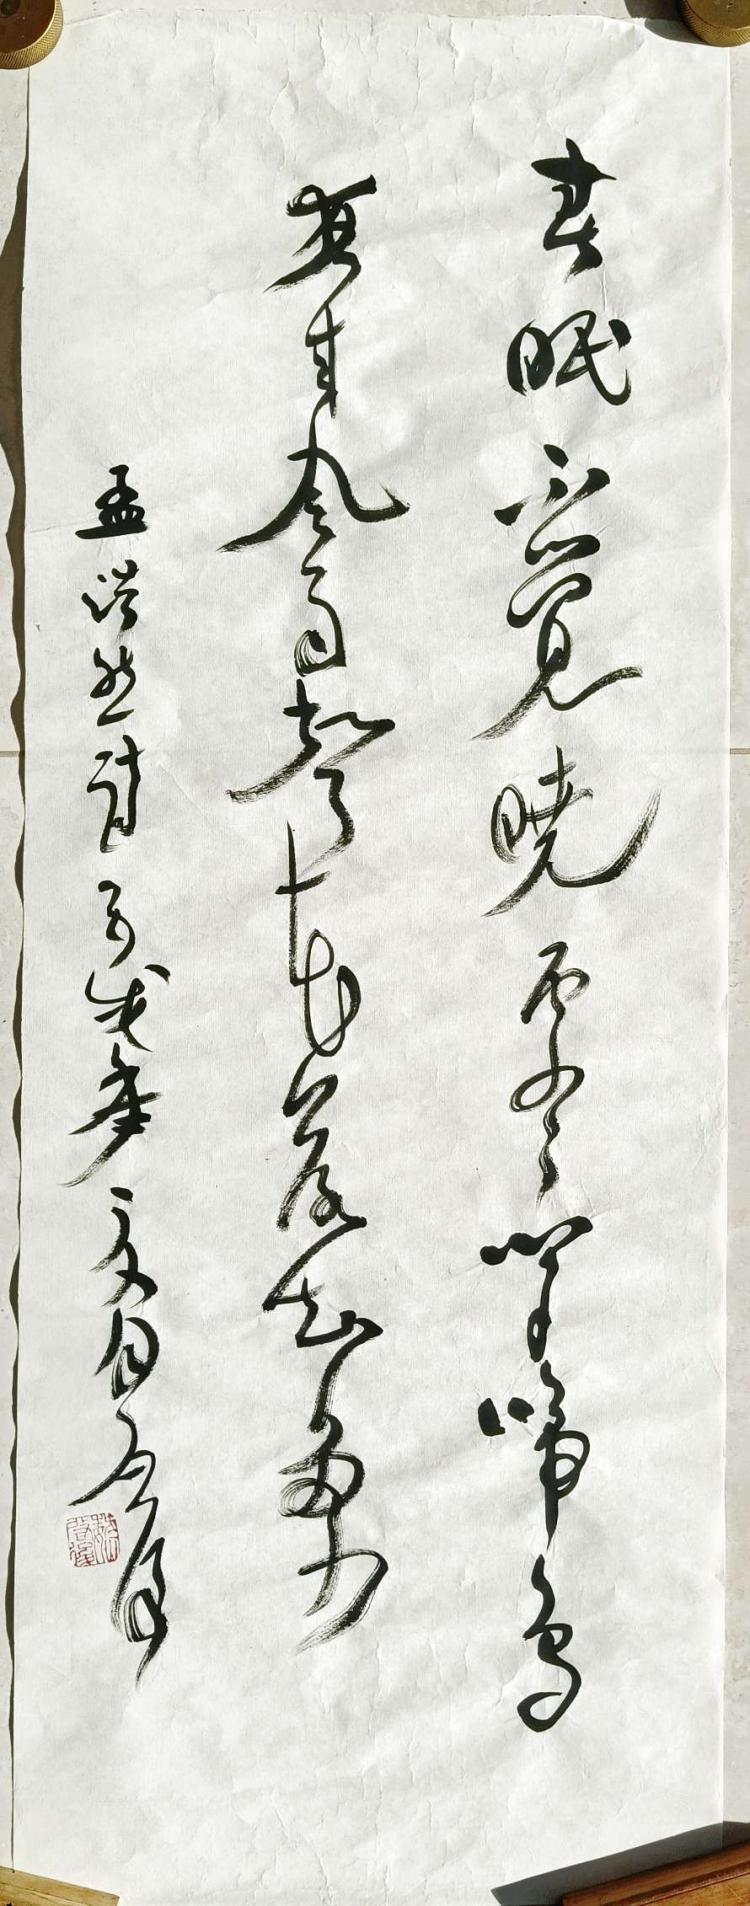 春眠不觉晓处处闻啼鸟
夜来风雨声花落知多少
孟浩然诗